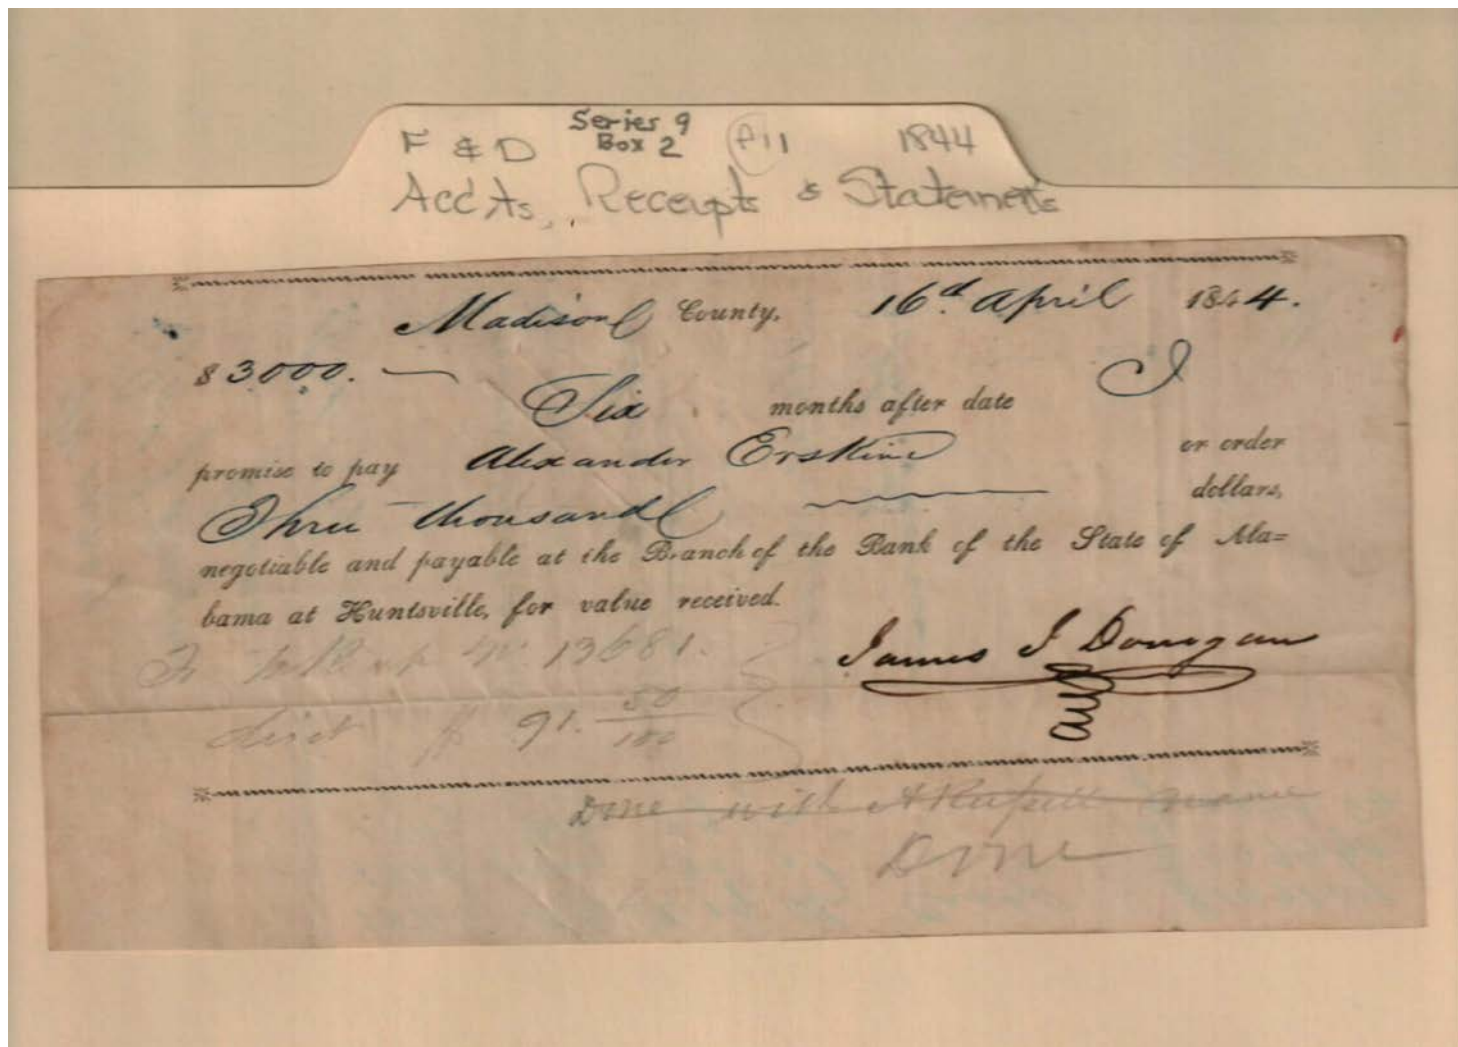 Series 9
F & D Box 2 F11 1844
Acc'ts, Receipts & Statements
Madison County, 16d. April 1844.
$3000.
Six months after date I
promise to pay Alexander Erskine or order
Three thousand dollars,
negotiable and payable at the Branch of the Bank of the State of Ala=
bama at Huntsville, for value received.
No. 13681.
James J Donegan
$ 91. 50/100
Done with
Done